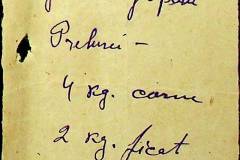 Prelurci -
4 kg. carne
2 kg. ficat